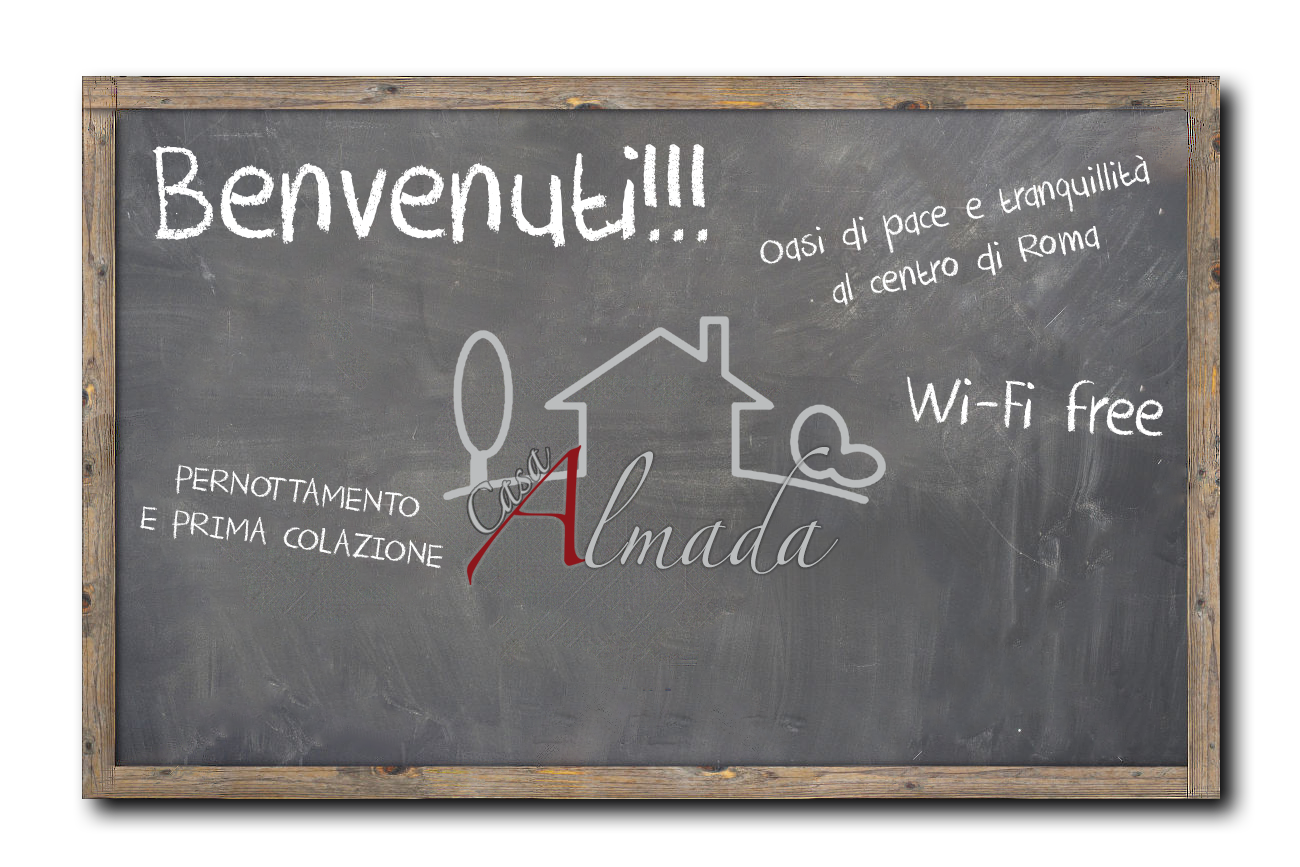 Benvenuti!!!
Oasi di pace e tranquillità
al centro di Roma
Wi-Fi free
PERNOTTAMENTO
E PRIMA COLAZIONE
Casa
Almada